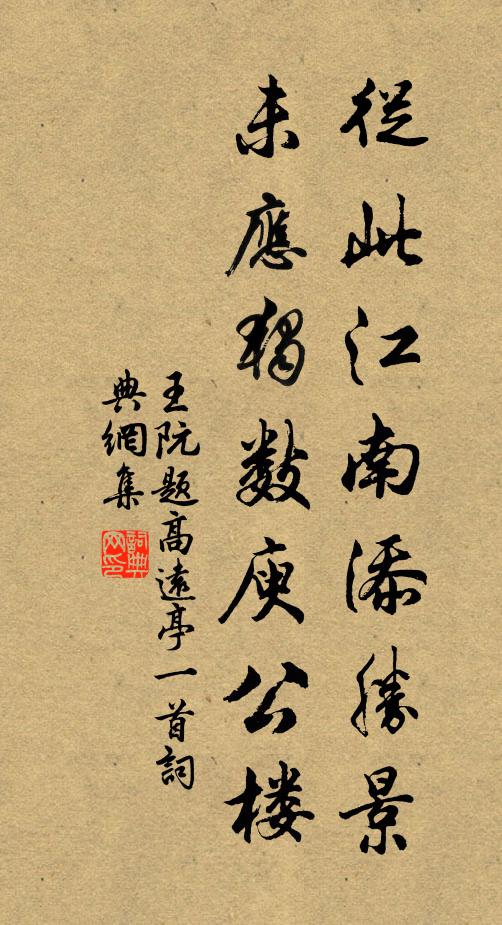 從此江南添勝景
未應獨數庾公樓
王阮題高遠亭一首詞
典網集
詞典網印